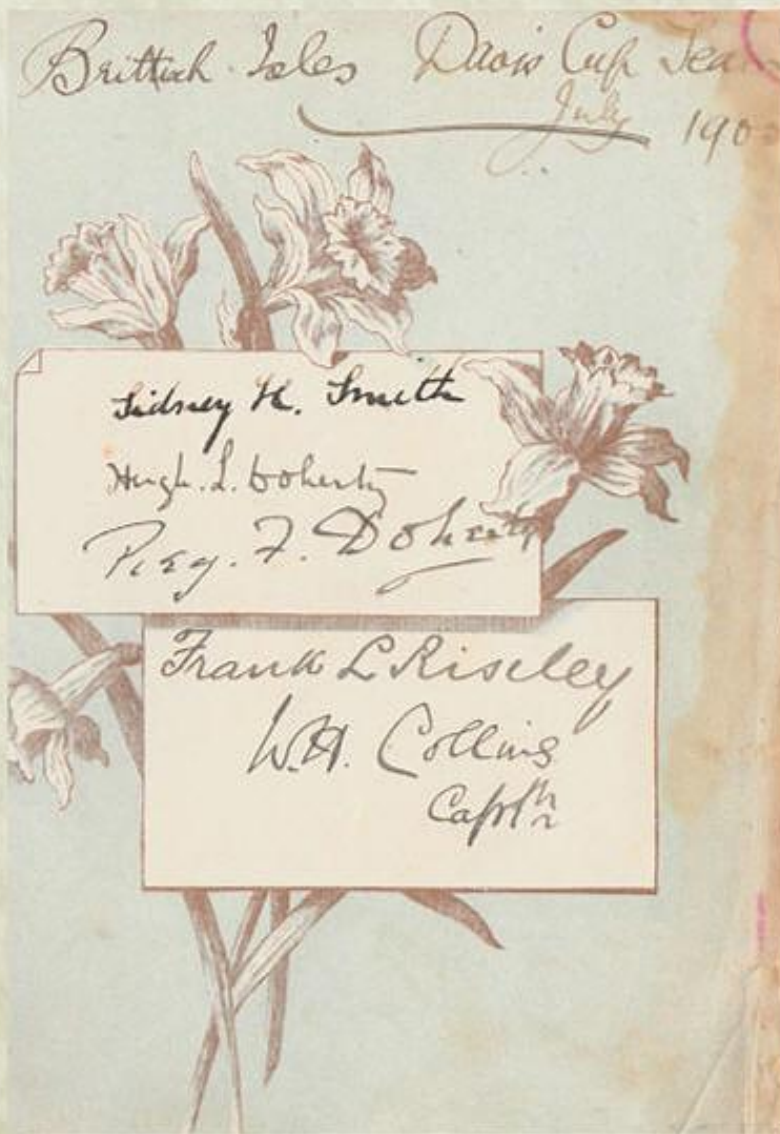 Brittish Isles Davis Cup Tea
July 190
Sidney H. Smith
Hugh. L. Doherty
Reg. F. Doherty
Frank L Riseley
W.H. Collins
Captn